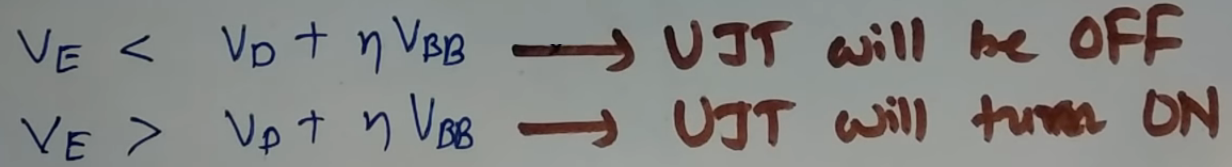 V_E < V_D + η V_BB → UJT will be OFF
V_E > V_D + η V_BB → UJT will turn ON